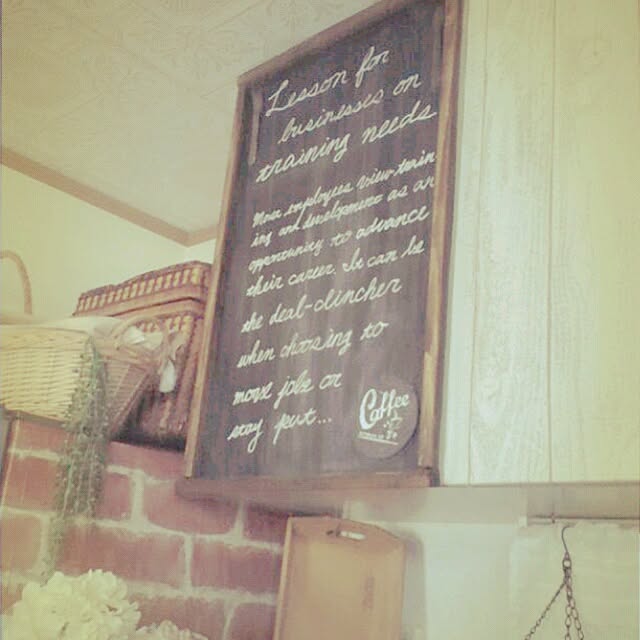 Lesson for
businesses on
training needs
Most employees view train
ing and development as an
opportunity to advance
their career. It can be
the deal-clincher
when choosing to
move jobs or
stay put...
Coffee